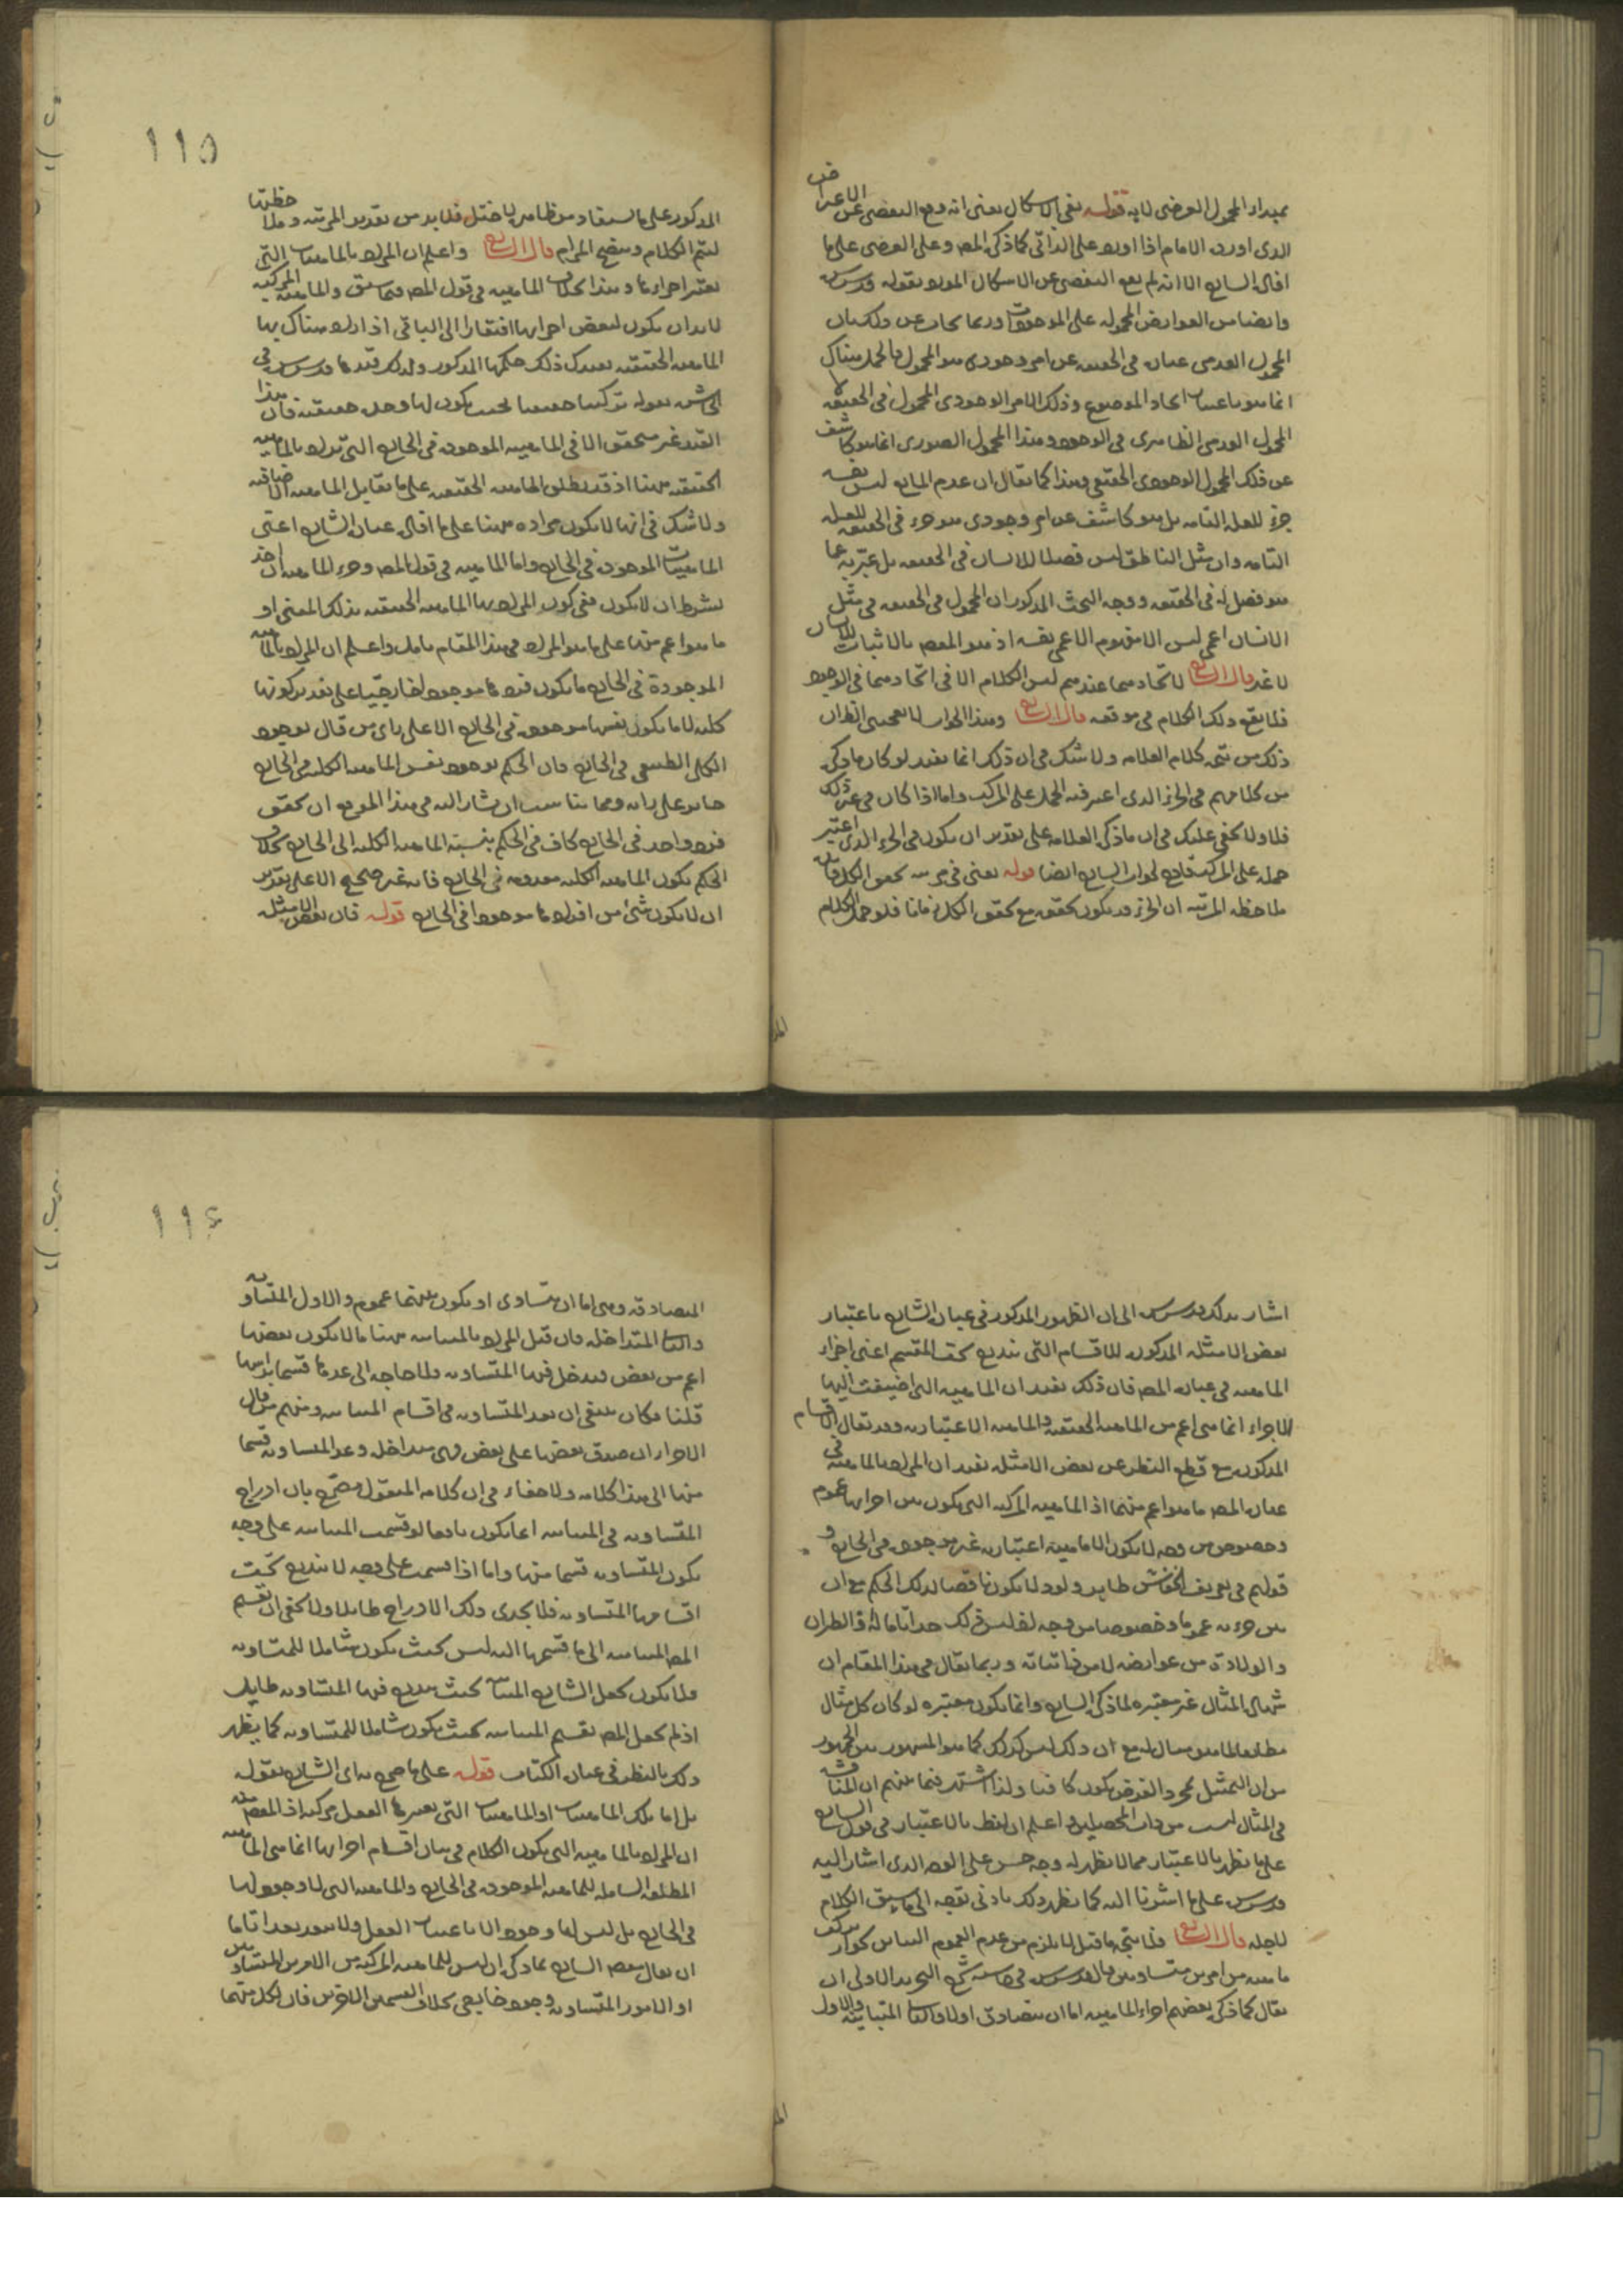 بمبدأ المحمول العرضى لا به قوله بقى الاشكال يعنى انه وقع التفصى عن الاعراض
الذى اورده الامام اذا اورد على الذاتى كما ذكره المص وعلى العرضى على ما
افاده الشارح الا انه لم يقع التفصى عن الاشكال المورد بقوله قدس سره
وايضا من العوارض المحمولة على الموجودات وربما يجاب عن ذلك بان
المحمول العدمى عبارة فى الحقيقة عن امر وجودى هو المحمول فالحمل هناك
انما هو باعتبار اتحاد الموضوع وذلك الامر الوجودى المحمول فى الحقيقة لا
المحمول العدمى الظاهرى فى الوجود وهذا المحمول الصورى انما هو كاشف
عن ذلك المحمول الوجودى الحقيقى وهذا كما يقال ان عدم المانع ليس نفسه
جزء للعلة التامة بل هو كاشف عن امر وجودى هو جزء فى الحقيقة للعلة
التامة وان مثل الناطق ليس فصلا للانسان فى الحقيقة بل عبّر به عما
هو فصل له فى الحقيقة ووجه البحث المذكور ان المحمول فى الحقيقة فى مثل
الانسان اعمى ليس الا مفهوم الاعمى نفسه اذ هو المقصود بالاثبات للانسان
لا غير قال الشارح لاتحادهما عندهم ليس الكلام الا فى اتحادهما فى الوجود
فلا يقع ذلك الكلام فى موقعه قال الشارح وهذا الجواب لا يعجبنى الظ ان
ذلك من تتمة كلام العلامة ولا شك فى ان ذلك انما يفيد لو كان ما ذكره
من كلامهم فى الجزء الذى اعتبر فيه الحمل على المركب واما اذا كان فى غير ذلك
فلا ولا يخفى عليك فى ان ما ذكره العلامة على تقدير ان يكون فى الجزء الذى اعتبر
حمله على المركب قادح لجواب الشارح ايضا قوله يعنى فى مرتبة تحقق الكل فان
ملاحظة المرتبة ان الجزء قد يكون تحققه مع تحقق الكل زمانا فلو حمل الكلام
١١٥
المذكور على ما يستفاد من ظاهره لاختل فلا بد من تقدير المرتبة وملاحظتها
ليتم الكلام ويتضح المرام قال الشارح واعلم ان المراد بالماهيات التى
يعتبر اجزاءها وهذا بخلاف الماهية فى قول المص فيما سبق والماهية المركبة
لا بد ان يكون لبعض اجزائها افتقار الى الباقى اذ اراد هناك بها
الماهية الحقيقية بعدك ذلك حكمها المذكور ولذلك قيدها قدس سره فى
الحاشية بقوله تركيبا حقيقيا بحيث يكون لها وحدة حقيقية فان هذا
القيد غير متحقق الا فى الماهية الموجودة فى الخارج التى تراد بالماهية
الحقيقية ههنا اذ قد يطلق الماهية الحقيقية على ما يقابل الماهية الاضافية
ولا شك فى انها لا يكون مرادة ههنا على ما افاده عبارة الشارح اعنى
الماهيات الموجودة فى الخارج واما الماهية فى قول المص وجزء الماهية ان اخذ
بشرط ان لا يكون ففى كون المراد بها الماهية الحقيقية بذلك المعنى او
ما هو اعم منها على ما هو المراد فى هذا المقام تامل واعلم ان المراد بالماهية
الموجودة فى الخارج ما يكون فردها موجودا خارجيا على تقدير كونها
كلية لا ما يكون نفسها موجودة فى الخارج الا على رأى من قال بوجود
الكلى الطبيعى فى الخارج فان الحكم بوجود نفس الماهية الكلية فى الخارج
جائز على رايه ومما يناسب ان يشار اليه فى هذا الموضع ان تحقق
فرد واحد فى الخارج كاف فى الحكم بنسبة الماهية الكلية الى الخارج بخلاف
الحكم بكون الماهية الكلية معدومة فى الخارج فانه غير صحيح الا على تقدير
ان لا يكون شئ من افرادها موجودا فى الخارج قوله فان بعض الامثلة
اشار بذلك قدس سره الى ان الظهور المذكور فى عبارة الشارح باعتبار
بعض الامثلة المذكورة للاقسام التى يندرج تحت المقسم اعنى اجزاء
الماهية فى عبارة المص فان ذلك يفيد ان الماهية التى اضيفت اليها
الاجزاء انما هى اعم من الماهية الحقيقية والماهية الاعتبارية وقد يقال الاقسام
المذكورة مع قطع النظر عن بعض الامثلة يفيد ان المراد بالماهية فى
عبارة المص ما هو اعم منهما اذ الماهية المركبة التى يكون بين اجزائها عموم
وخصوص من وجه لا يكون الا ماهية اعتبارية غير موجودة فى الخارج و
قولهم فى تعريف الخفاش طاير ولود لا يكون ناقضا لذلك الحكم مع ان
بين جزئيه عموما وخصوصا من وجه لان ليس ذلك حدا تاما له اذ الطيران
والولادة من عوارضه لا من ذاتياته وربما يقال فى هذا المقام ان
شهادة المثال غير معتبرة لما ذكره الشارح وانما يكون معتبرة لو كان كل مثال
مطابقا لما هو مثال له مع ان ذلك ليس كذلك كما هو المشهور بين الجمهور
من ان التمثيل بمجرد الفرض يكون كافيا ولذا اشتهر فيما بينهم ان المناقشة
فى المثال ليست من داب المحصلين واعلم ان لفظ بالاعتبار فى قول الشارح
على ما يظهر بالاعتبار مما لا يظهر له وجه حسن على الوجه الذى اشار اليه
قدس سره على ما اشرنا اليه كما يظهر ذلك بادنى توجه الى ما سبق الكلام
لاجله قال الشارح فلا يتجه ما قيل لا يلزم من عدم العموم التباين لجواز تركب
ماهية من امرين متساويين قال قدس سره فى حاشية شرح التجريد الاولى ان
يقال كما ذكره بعضهم اجزاء الماهية اما ان يتصادق اولا والثانية المتباينة والاول
١١٦
المتصادقة وهى اما ان يتساوى او يكون بينهما عموم والاول المتساوية
والثانية المتداخلة فان قيل المراد بالمتباينة ههنا ما لا يكون بعضها
اعم من بعض فيدخل فيها المتساوية ولا حاجة الى عدها قسما براسها
قلنا فكان ينبغى ان يعد المتساوية فى اقسام المتباينة ومنهم من قال
الاجزاء ان صدق بعضها على بعض فهى متداخلة وعد المتساوية قسما
منها الى هذا كلامه ولا خفاء فى ان كلامه المنقول مصرّح بان ادراج
المتساوية فى المتباينة انما يكون نافعا لو قسمت المتباينة على وجه
يكون المتساوية قسما منها واما اذا قسمت على وجه لا يندرج تحت
اقسامها المتساوية فلا يجدى ذلك الادراج طايلا ولا يخفى ان تقسيم
المص المتباينة الى ما قسمها اليه ليس بحيث يكون شاملا للمتساوية
فلا يكون لجعل الشارح المتباينة بحيث يندرج فيها المتساوية طايل
اذ لم يجعل المص تقسيم المتباينة بحيث يكون شاملا للمتساوية كما يظهر
ذلك بالنظر فى عبارة الكتاب قوله على ما صرح به اى الشارح بقوله
بل اما تلك الماهيات او الماهيات التى يعتبرها العقل مركبة اذ المقصود منه
ان المراد بالماهية التى يكون الكلام فى بيان اقسام اجزائها انما هى الماهية
المطلقة الشاملة للماهية الموجودة فى الخارج والماهية التى لا وجود لها
فى الخارج بل ليس لها وجود الا باعتبار العقل ولا يبعد بعدا تاما
ان يقال مقصود الشارح مما ذكره ان ليس للماهية المركبة من الامرين المتساويين
او الامور المتساوية وجود خارجى بخلاف القسمين الاخرين فان لكل منهما